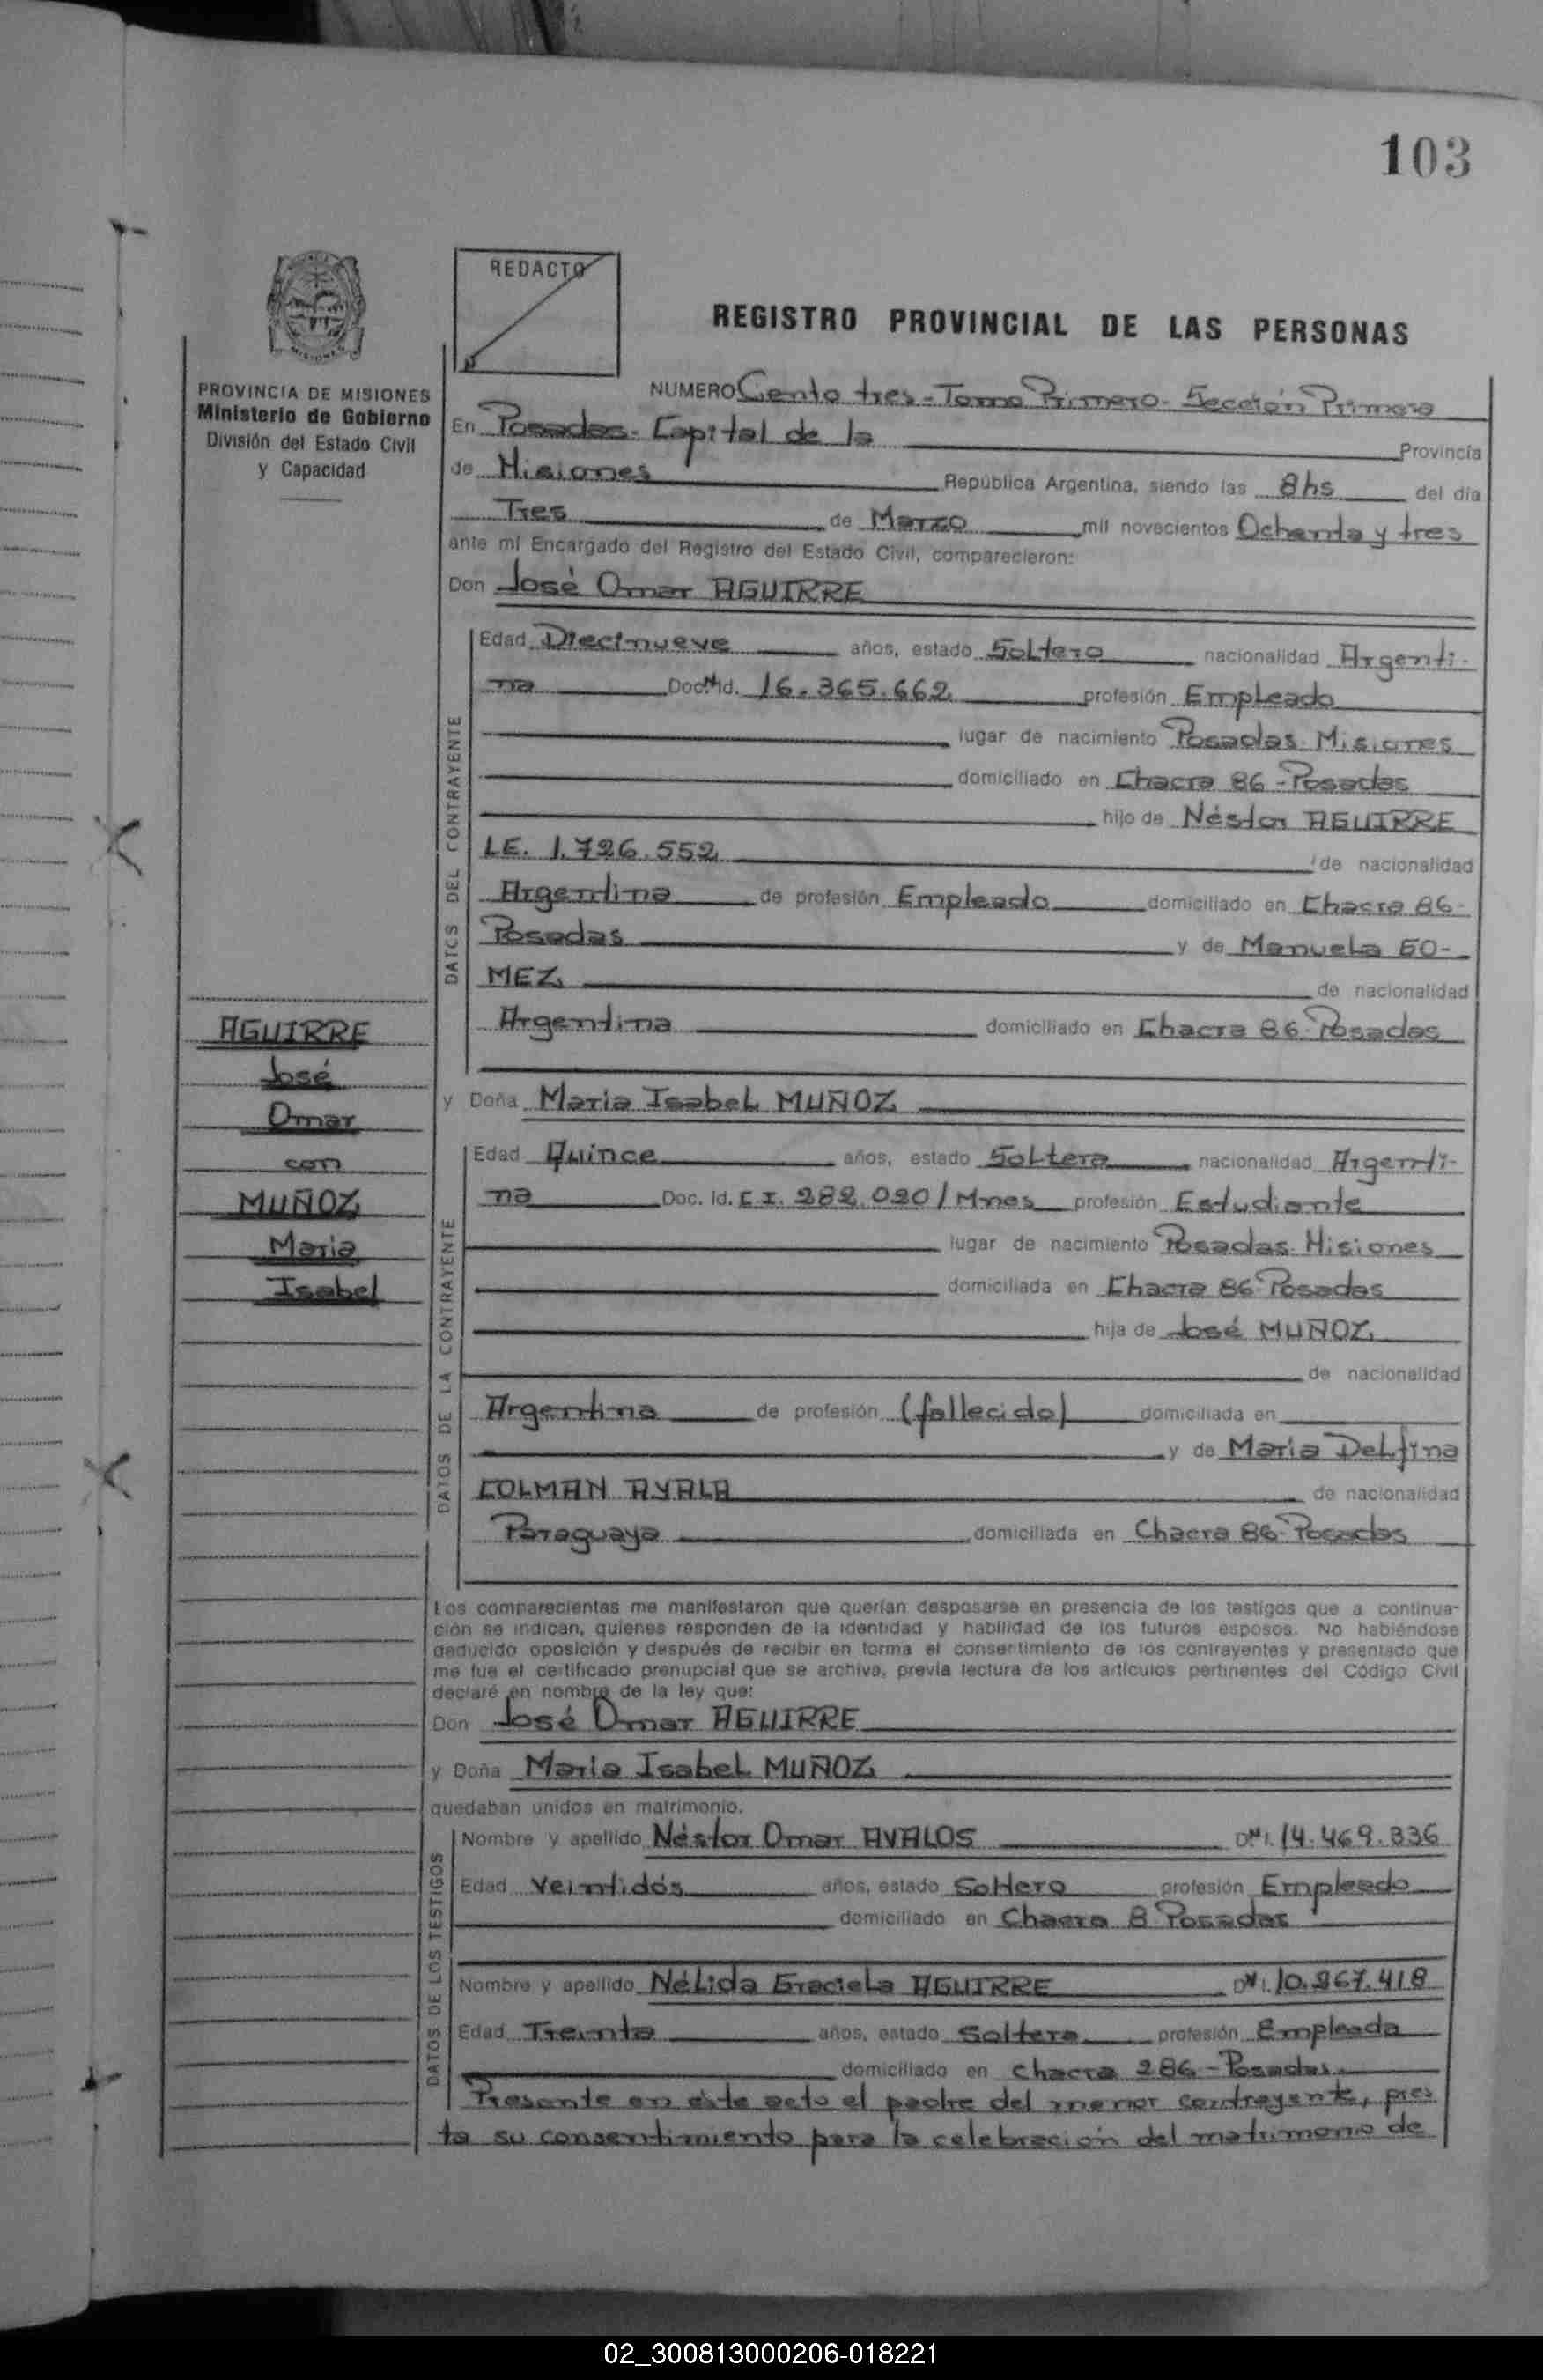 103
REDACTO
REGISTRO PROVINCIAL DE LAS PERSONAS
PROVINCIA DE MISIONES
Ministerio de Gobierno
División del Estado Civil
y Capacidad
NUMERO Ciento tres - Tomo Primero - Sección Primera
En Posadas - Capital de la Provincia
de Misiones República Argentina, siendo las 8hs del día
Tres de Marzo mil novecientos Ochenta y tres
ante mí Encargado del Registro del Estado Civil, comparecieron:
Don José Omar AGUIRRE
DATOS DEL CONTRAYENTE
Edad Diecinueve años, estado Soltero nacionalidad Argenti-
na Doc. Id. 16.365.662 profesión Empleado
lugar de nacimiento Posadas - Misiones
domiciliado en Chacra 86 - Posadas
hijo de Néstor AGUIRRE
LE. 1.726.552 de nacionalidad
Argentina de profesión Empleado domiciliado en Chacra 86-
Posadas y de Manuela GO-
MEZ de nacionalidad
Argentina domiciliado en Chacra 86 - Posadas
AGUIRRE
José
Omar
con
MUÑOZ
Maria
Isabel
y Doña Maria Isabel MUÑOZ
DATOS DE LA CONTRAYENTE
Edad Quince años, estado Soltera nacionalidad Argenti-
na Doc. Id. C I. 282.020/Mnes profesión Estudiante
lugar de nacimiento Posadas - Misiones
domiciliada en Chacra 86 - Posadas
hija de José MUÑOZ
de nacionalidad
Argentina de profesión (fallecido) domiciliada en
y de Maria Delfina
COLMAN AYALA de nacionalidad
Paraguaya domiciliada en Chacra 86 - Posadas
Los comparecientes me manifestaron que querían desposarse en presencia de los testigos que a continua-
ción se indican, quienes responden de la identidad y habilidad de los futuros esposos. No habiéndose
deducido oposición y después de recibir en forma el consertimiento de los contrayentes y presentado que
me fue el certificado prenupcial que se archiva, previa lectura de los artículos pertinentes del Código Civil
declaré en nombre de la ley que:
Don José Omar AGUIRRE
y Doña Maria Isabel MUÑOZ
quedaban unidos en matrimonio.
DATOS DE LOS TESTIGOS
Nombre y apellido Néstor Omar AVALOS DNI. 14.469.336
Edad Veintidós años, estado Soltero profesión Empleado
domiciliado en Chacra 8 Posadas
Nombre y apellido Nélida Graciela AGUIRRE DNI. 10.267.418
Edad Treinta años, estado Soltera profesión Empleada
domiciliado en Chacra 286 - Posadas
Presente en este acto el padre del menor contrayente, pres
ta su consentimiento para la celebración del matrimonio de
02_300813000206-018221